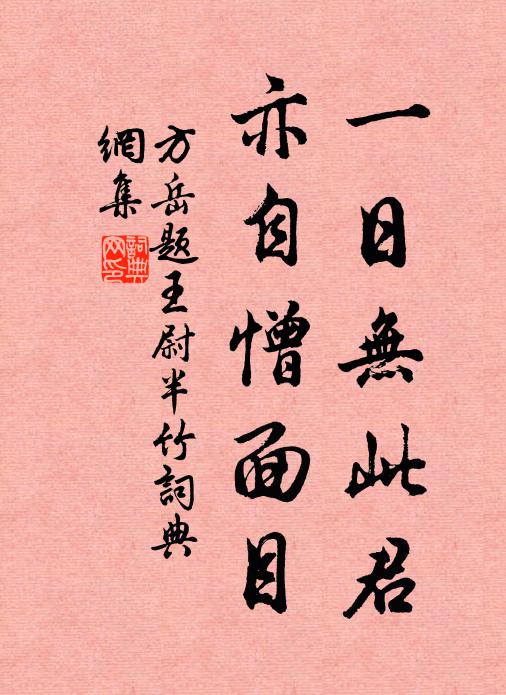 一日無此君
亦自憎面目
方岳題王尉半竹詞典
網集
詞典網印